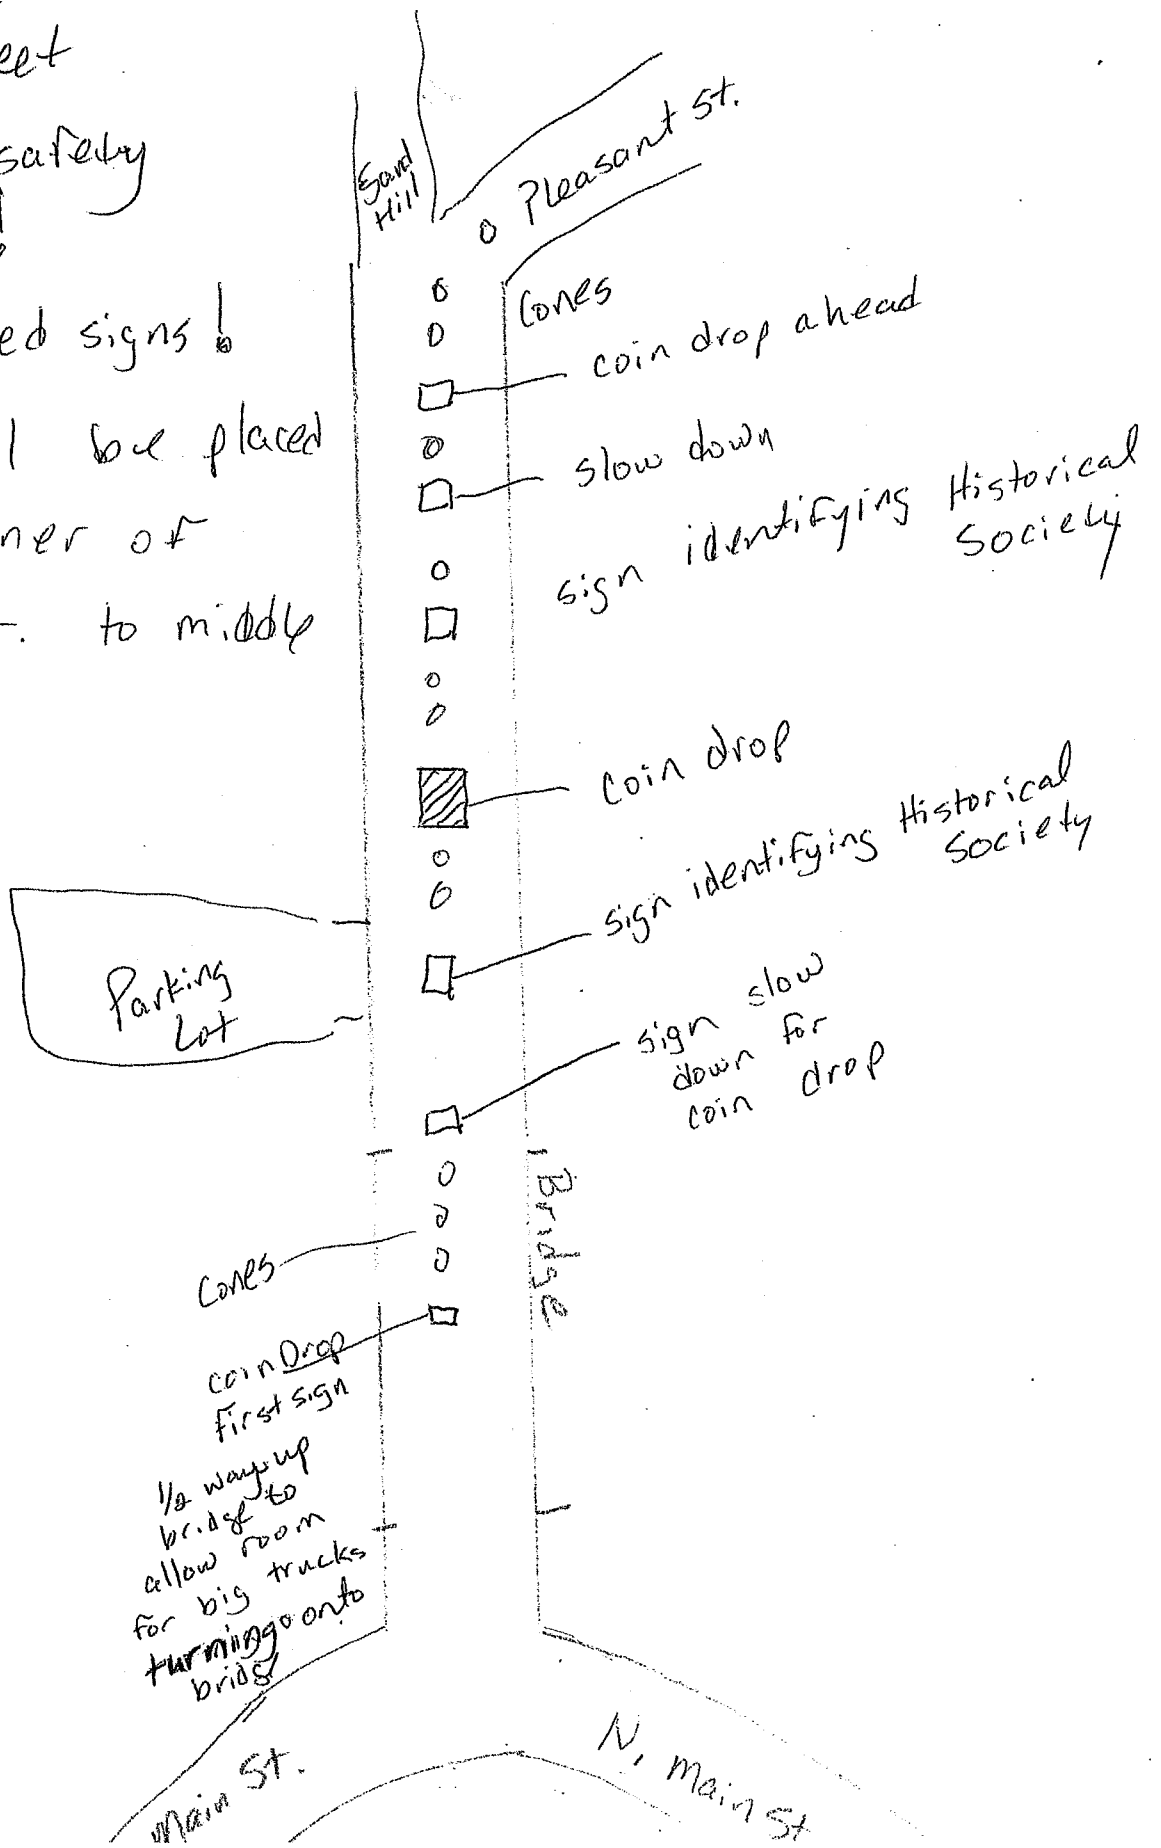 eet
safety
!
ed signs!
l be placed
ner of
. to middle
Sand
Hill
Pleasant St.
Cones
coin drop ahead
slow down
sign identifying Historical
Society
coin drop
sign identifying Historical
Society
Parking
Lot
sign slow
down for
coin drop
Bridge
Cones
coin Drop
first sign
1/2 way up
bridge to
allow room
for big trucks
turning onto
bridge
Main St.
N. Main St